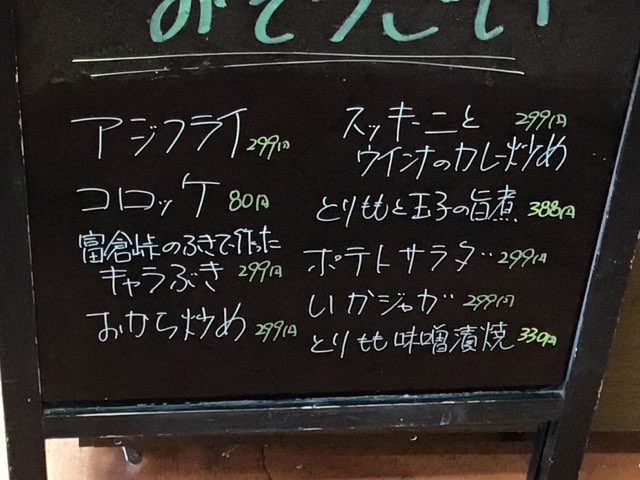 アジフライ 299円
コロッケ 80円
富倉峠のふきで作った
キャラぶき 299円
おから炒め 299円
ズッキーニと 299円
ウインナのカレー炒め
とりももと玉子の旨煮 388円
ポテトサラダ 299円
いかジャガ 299円
とりもも味噌漬焼 330円